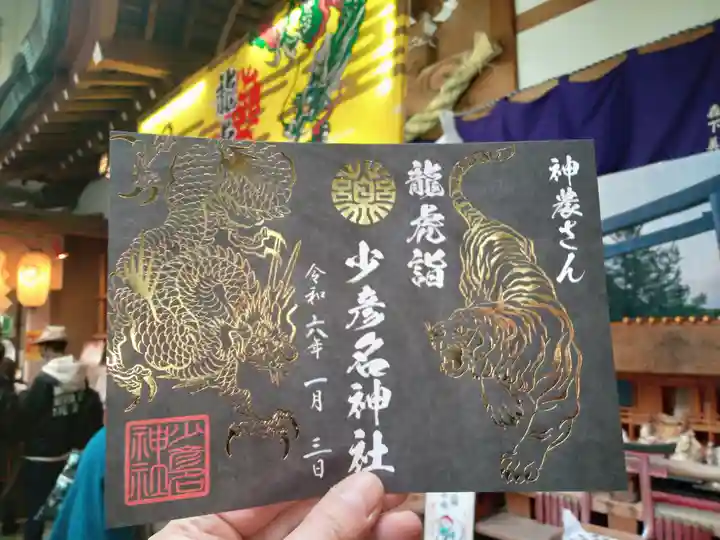 神農さん
龍虎詣
薬
少彦名神社
令和六年 一月 三日
少彦名
神社
龍